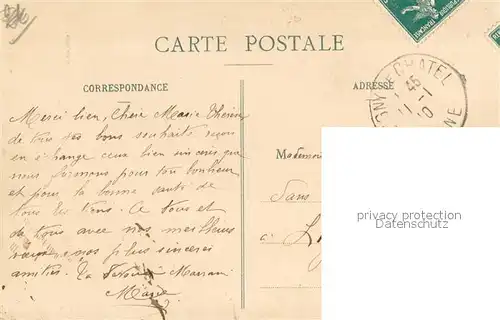 CARTE POSTALE
CORRESPONDANCE
Merci bien, Chère Marie Thérèse
de tous tes bons souhaits reçois
en échange ceux bien sincères que
nous formons pour ton bonheur
et pour la bonne santé de
tous les tiens. Ce Tous et
de tous avec nos meilleurs
nos plus sincères
amitiés. Ta Marraine
Marie
ADRESSE
CHATEL
45
Mademoi
Sans
à
privacy protection
Datenschutz